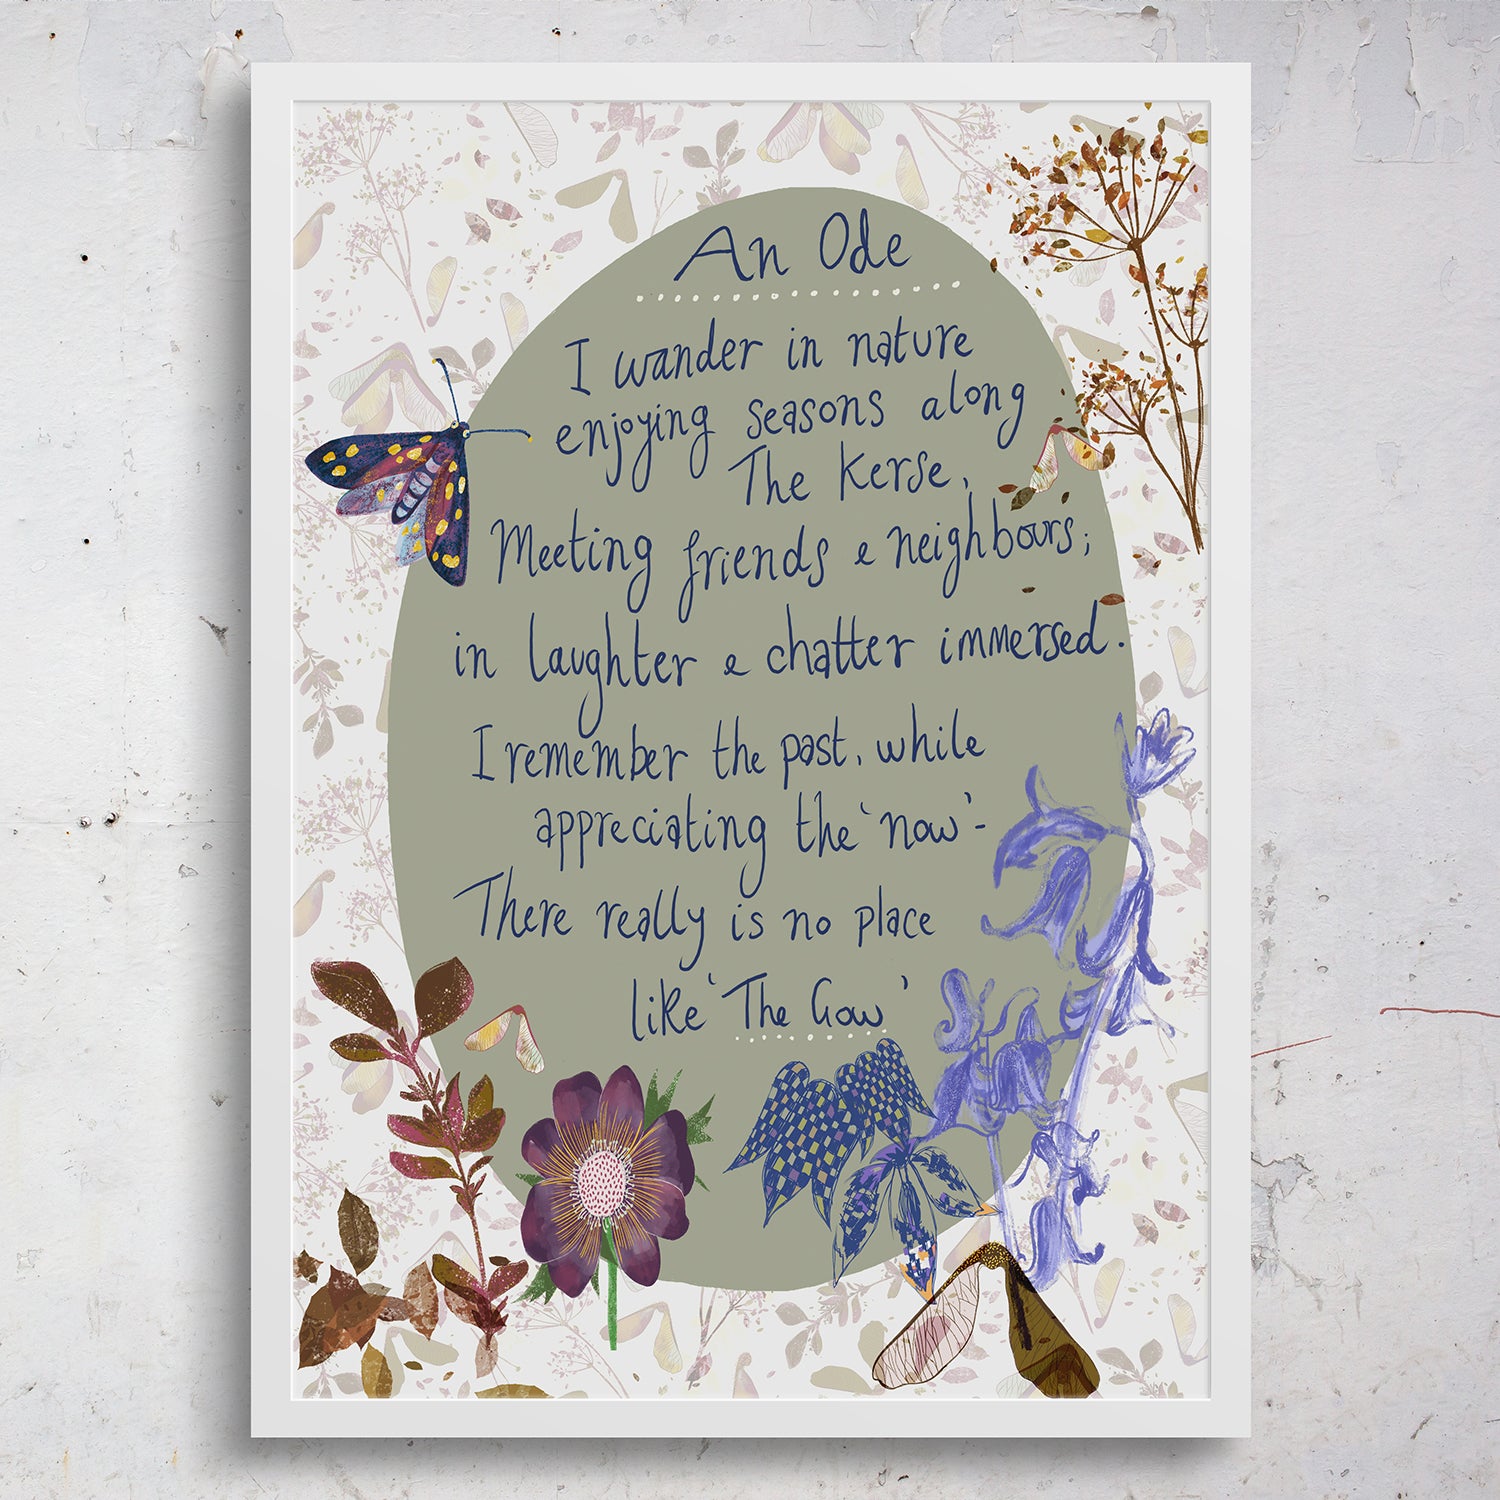 An Ode
I wander in nature
enjoying seasons along
The Kerse,
Meeting friends & neighbours;
in laughter & chatter immersed.
I remember the past, while
appreciating the 'now' -
There really is no place
like 'The Gow'